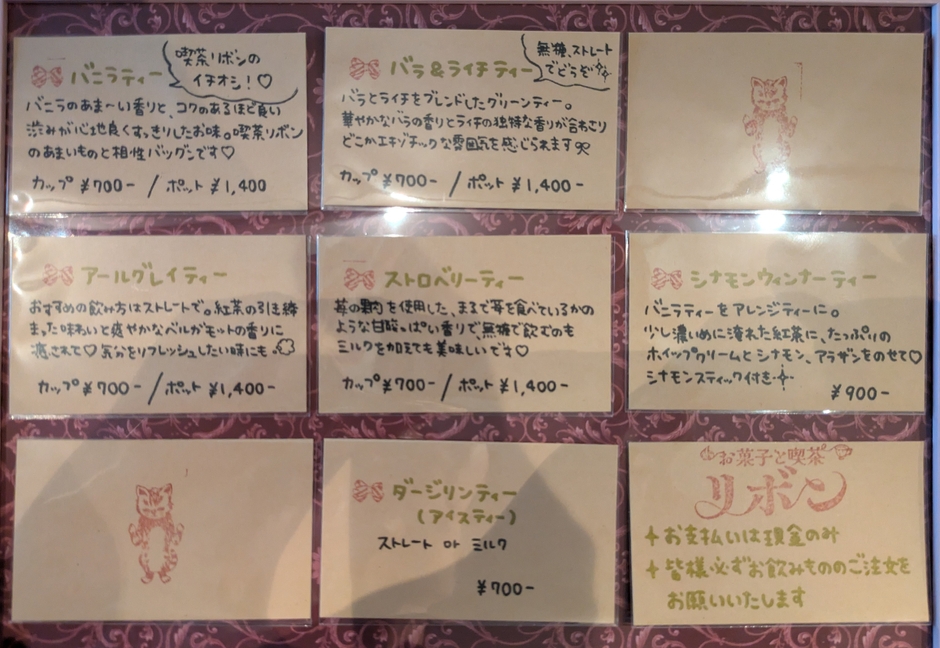 バニラティー
喫茶リボンの
イチオシ!♡
バニラのあま〜い香りと、コクのあるほど良い
渋みが心地良くすっきりしたお味。喫茶リボン
のあまいものと相性バツグンです♡
カップ ¥700- / ポット ¥1,400
バラ&ライチティー
無糖、ストレート
でどうぞ
バラとライチをブレンドしたグリーンティー。
華やかなバラの香りとライチの独特な香りが合わさり
どこかエキゾチックな雰囲気を感じられます
カップ ¥700- / ポット ¥1,400-
アールグレイティー
おすすめの飲み方はストレートで。紅茶の引き締
まった味わいと爽やかなベルガモットの香りに
癒されて♡気分をリフレッシュしたい時にも
カップ ¥700- / ポット ¥1,400-
ストロベリーティー
苺の果肉を使用した、まるで苺を食べているかの
ような甘酸っぱい香りで無糖で飲むのも
ミルクを加えても美味しいです♡
カップ ¥700- / ポット ¥1,400-
シナモンウィンナーティー
バニラティーをアレンジティーに。
少し濃いめに淹れた紅茶に、たっぷりの
ホイップクリームとシナモン、アラザンをのせて♡
シナモンスティック付き
¥900-
ダージリンティー
(アイスティー)
ストレート or ミルク
¥700-
お菓子と喫茶
リボン
+お支払いは現金のみ
+皆様必ずお飲みもののご注文を
お願いいたします